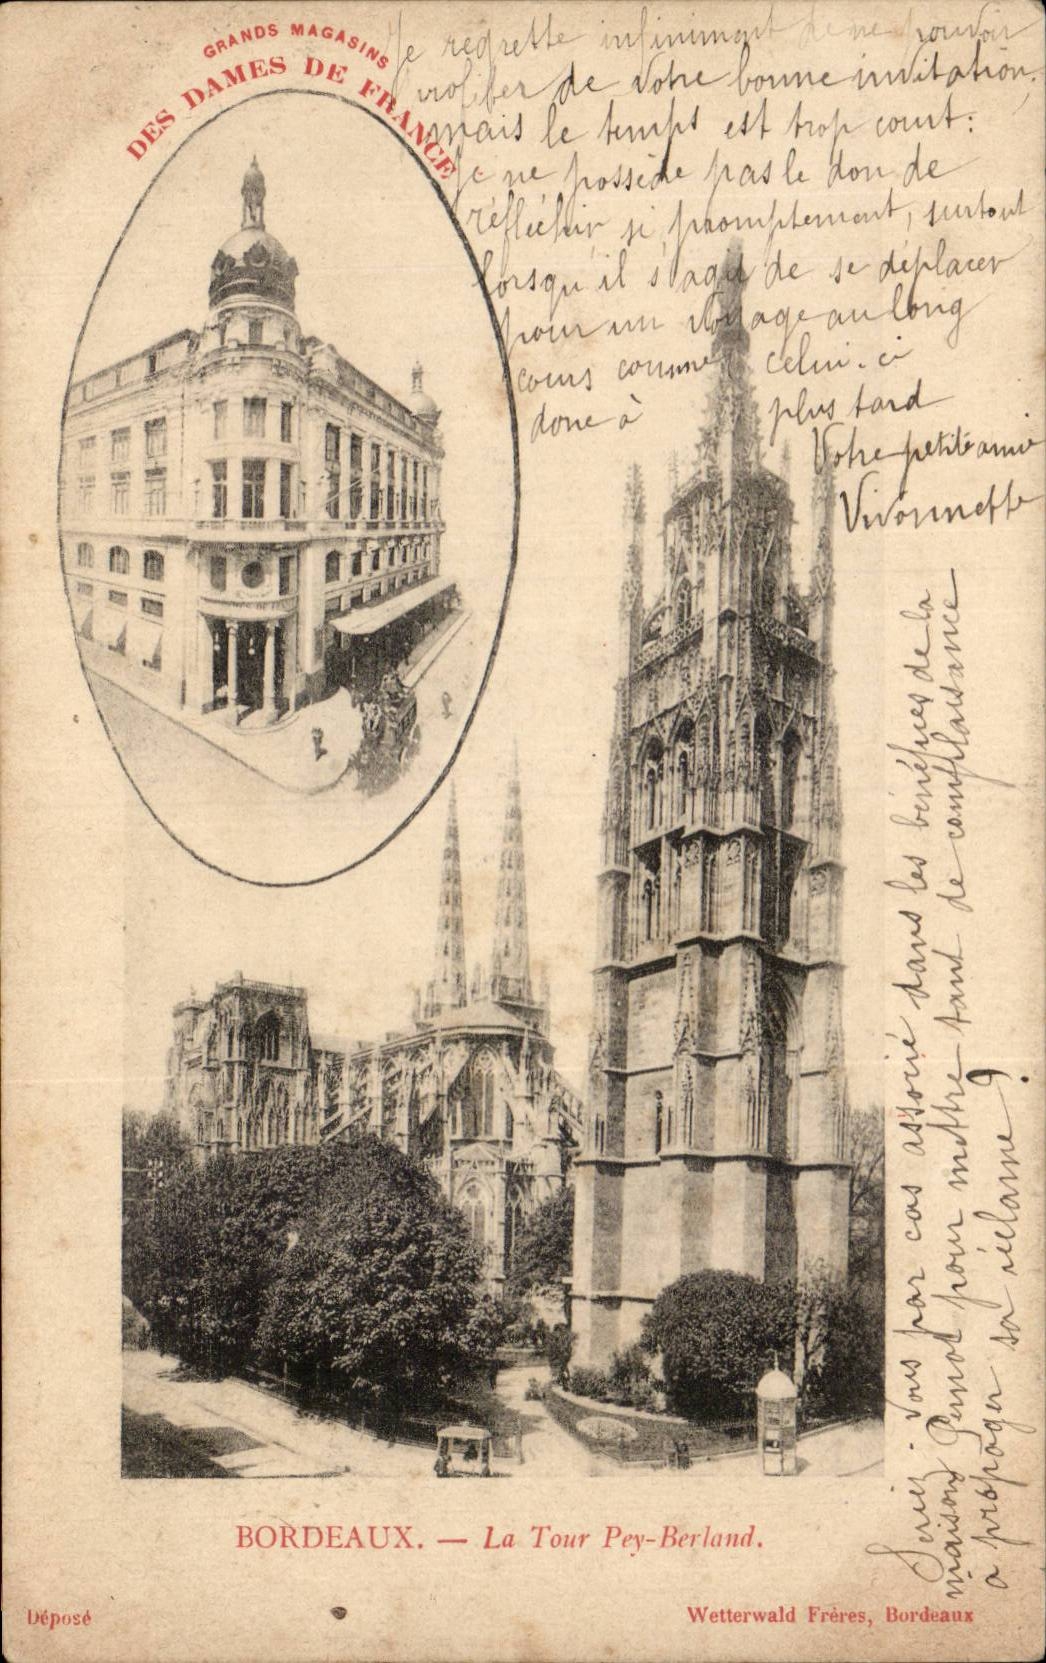 GRANDS MAGASINS
DES DAMES DE FRANCE
Je regrette infiniment de ne pouvoir
profiter de votre bonne invitation,
mais le temps est trop court:
Je ne possède pas le don de
réfléchir si promptement, surtout
lorsqu'il s'agit de se déplacer
pour un voyage au long
cours comme celui-ci
donc à plus tard
Votre petite amie
Vivonnette
Seriez-vous par cas associé dans les bénéfices de la
maison Pernot pour mettre tant de complaisance
a propager sa réclame?
BORDEAUX. — La Tour Pey-Berland.
Déposé
Wetterwald Frères, Bordeaux